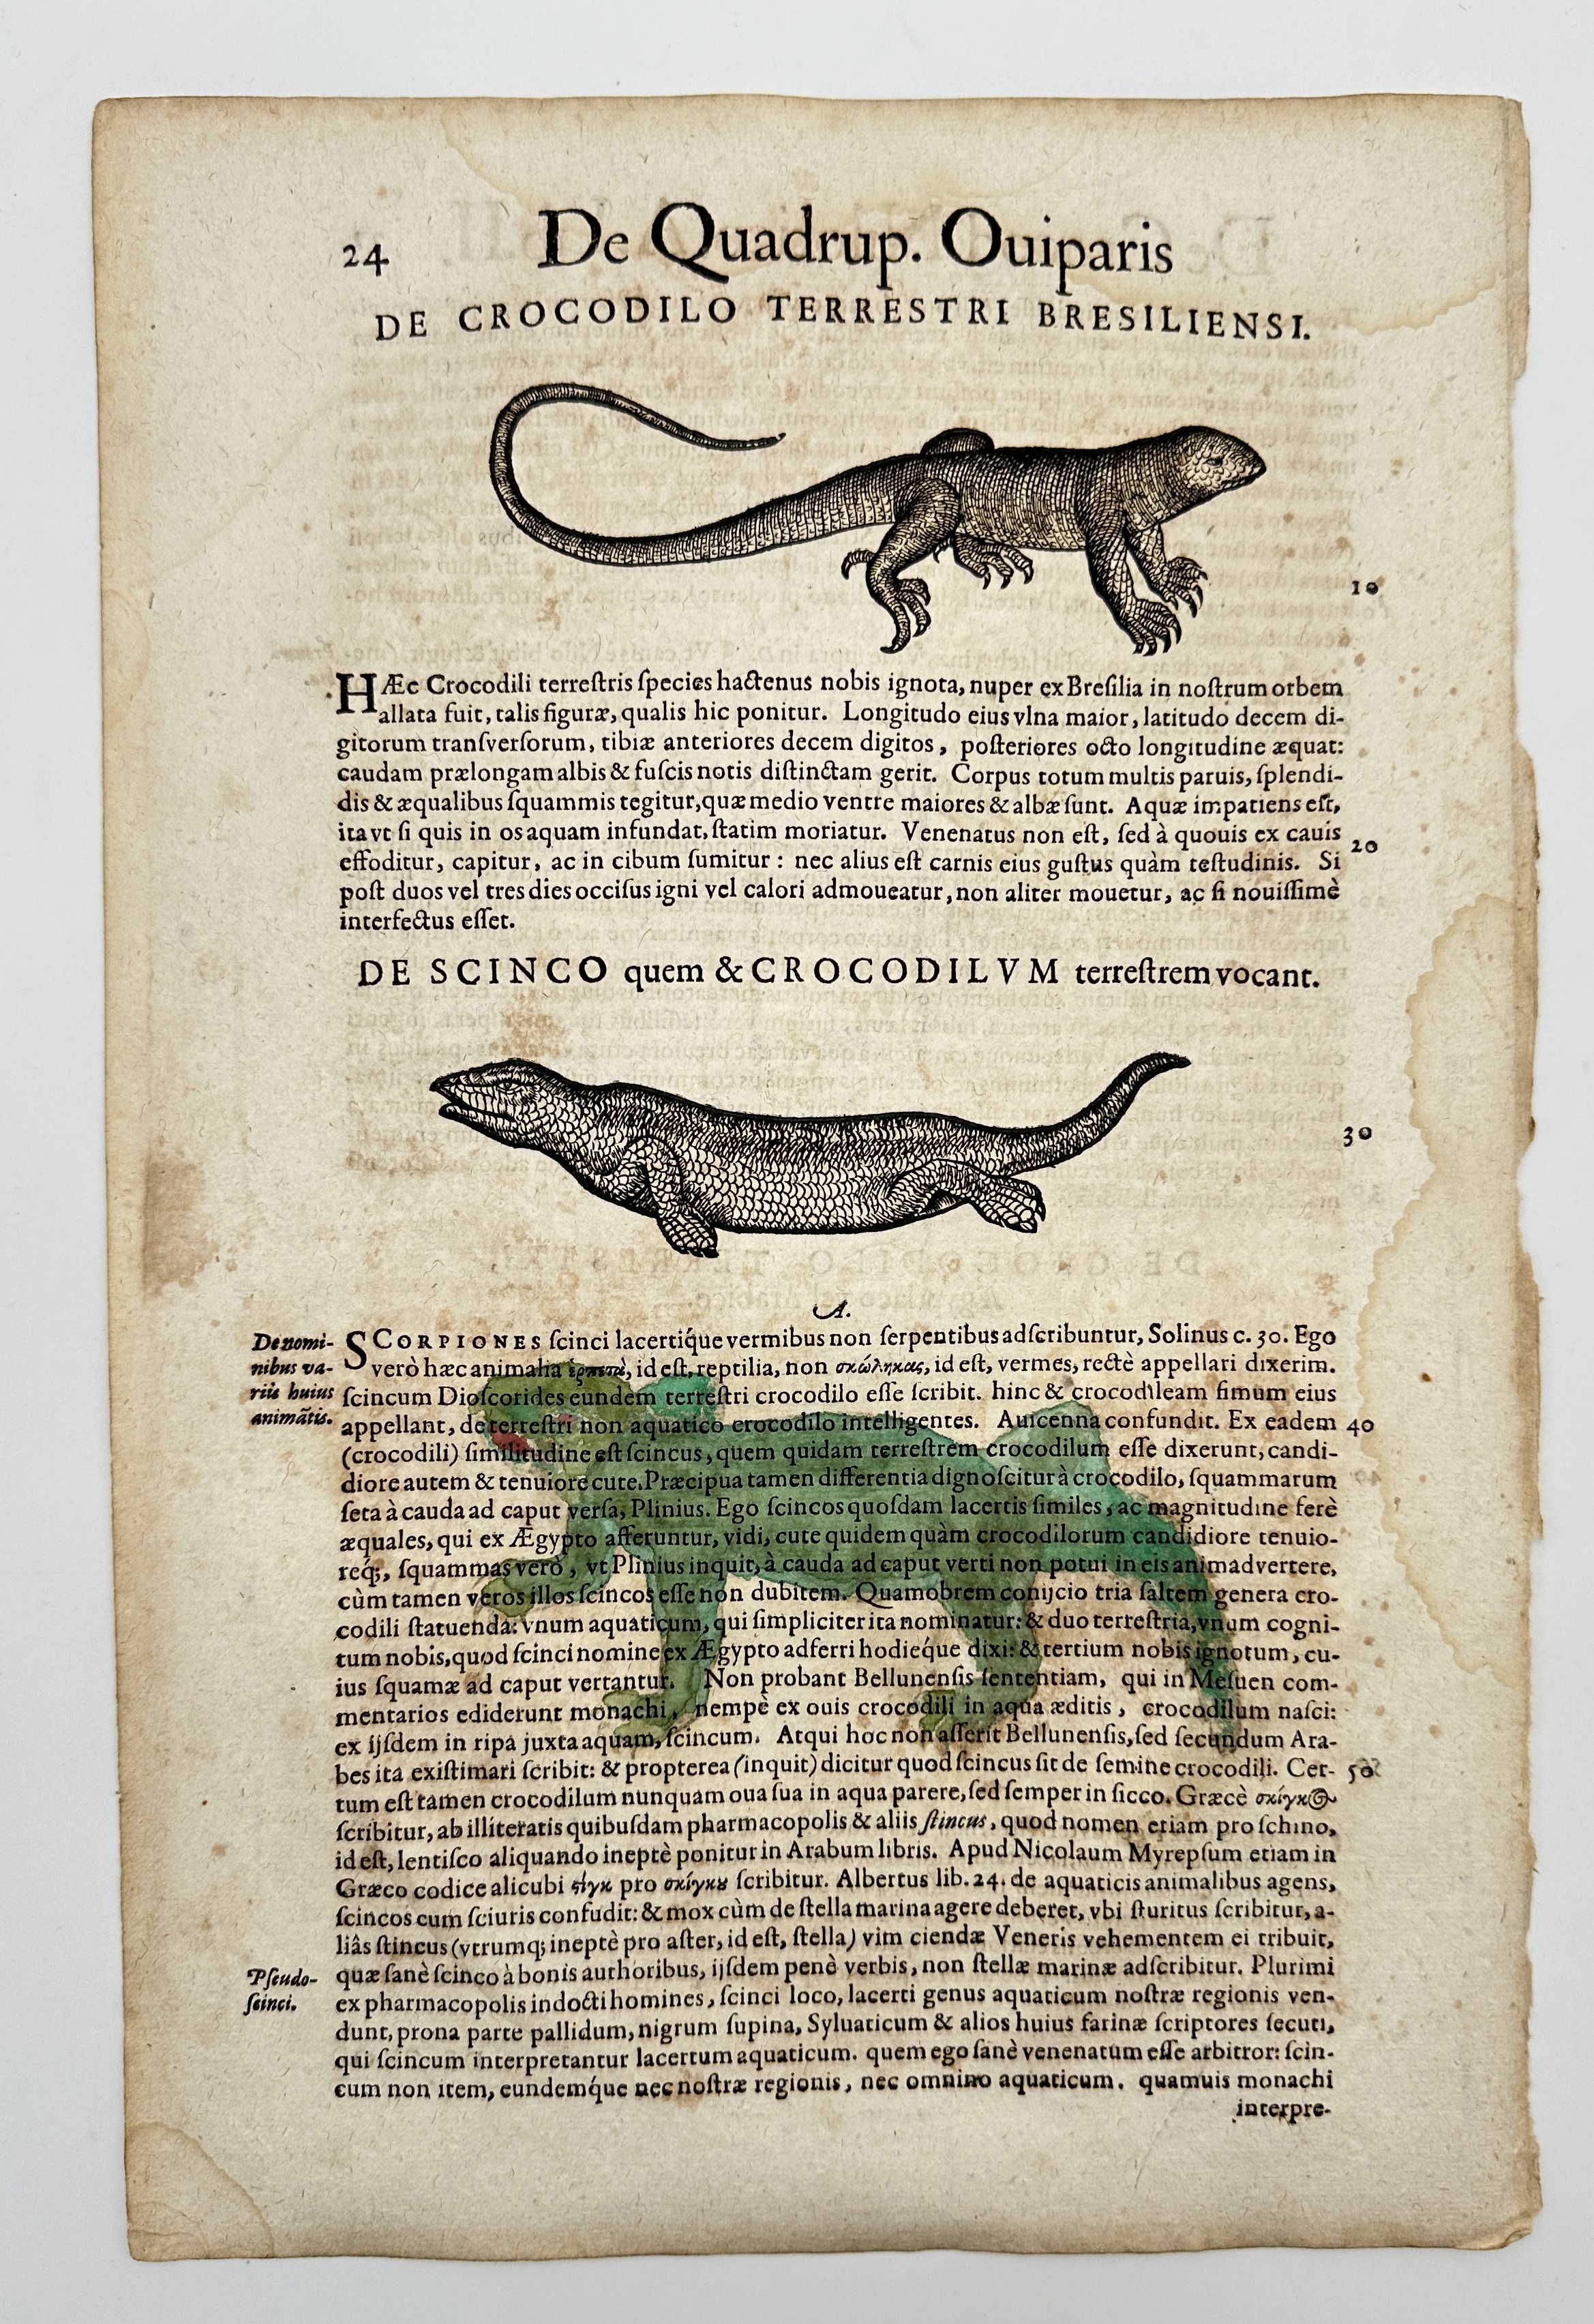 24 De Quadrup. Ouiparis
DE CROCODILO TERRESTRI BRESILIENSI.
10
HÆc Crocodili terreſtris ſpecies hactenus nobis ignota, nuper ex Breſilia in noſtrum orbem
allata fuit, talis figuræ, qualis hic ponitur. Longitudo eius vlna maior, latitudo decem di-
gitorum tranſverſorum, tibiæ anteriores decem digitos, poſteriores octo longitudine æquat:
caudam prælongam albis & fuſcis notis diſtinctam gerit. Corpus totum multis paruis, ſplendi-
dis & æqualibus ſquammis tegitur, quæ medio ventre maiores & albæ ſunt. Aquæ impatiens eſt,
ita vt ſi quis in os aquam infundat, ſtatim moriatur. Venenatus non eſt, ſed à quouis ex cauis 20
effoditur, capitur, ac in cibum ſumitur : nec alius eſt carnis eius guſtus quàm teſtudinis. Si
poſt duos vel tres dies occiſus igni vel calori admoueatur, non aliter mouetur, ac ſi nouiſſimè
interfectus eſſet.
DE SCINCO quem & CROCODILVM terreſtrem vocant.
30
A.
De nomi-
nibus va-
riis huius
animātis.
SCORPIONES ſcinci lacertiq́ue vermibus non ſerpentibus adſcribuntur, Solinus c. 30. Ego
verò hæc animalia ἑρπετὰ, id eſt, reptilia, non σκώληκας, id eſt, vermes, rectè appellari dixerim.
ſcincum Dioſcorides eundem terreſtri crocodilo eſſe ſcribit. hinc & crocodileam fimum eius
appellant, de terreſtri non aquatico crocodilo intelligentes. Auicenna confundit. Ex eadem 40
(crocodili) ſimilitudine eſt ſcincus, quem quidam terreſtrem crocodilum eſſe dixerunt, candi-
diore autem & tenuiore cute. Præcipua tamen differentia dignoſcitur à crocodilo, ſquammarum
ſeta à cauda ad caput verſa, Plinius. Ego ſcincos quoſdam lacertis ſimiles, ac magnitudine ferè
æquales, qui ex Ægypto afferuntur, vidi, cute quidem quàm crocodilorum candidiore tenuio-
req́;, ſquammas verò, vt Plinius inquit, à cauda ad caput verti non potui in eis animadvertere,
cùm tamen veros illos ſcincos eſſe non dubitem. Quamobrem conijcio tria ſaltem genera cro-
codili ſtatuenda: vnum aquaticum, qui ſimpliciter ita nominatur: & duo terreſtria, vnum cogni-
tum nobis, quod ſcinci nomine ex Ægypto adferri hodieq́ue dixi: & tertium nobis ignotum, cu-
ius ſquamæ ad caput vertantur. Non probant Bellunenſis ſententiam, qui in Meſuen com-
mentarios ediderunt monachi, nempè ex ouis crocodili in aqua æditis, crocodilum naſci:
ex ijſdem in ripa juxta aquam, ſcincum. Atqui hoc non aſſerit Bellunenſis, ſed ſecundum Ara-
bes ita exiſtimari ſcribit: & propterea (inquit) dicitur quod ſcincus ſit de ſemine crocodili. Cer- 50
tum eſt tamen crocodilum nunquam oua ſua in aqua parere, ſed ſemper in ſicco. Græcè σκίγκος
ſcribitur, ab illiteratis quibuſdam pharmacopolis & aliis ſtincus, quod nomen etiam pro ſchino,
id eſt, lentiſco aliquando ineptè ponitur in Arabum libris. Apud Nicolaum Myrepſum etiam in
Græco codice alicubi ϛίγκ pro σκίγκȣ ſcribitur. Albertus lib. 24. de aquaticis animalibus agens,
ſcincos cum ſciuris confudit: & mox cùm de ſtella marina agere deberet, vbi ſturitus ſcribitur, a-
liâs ſtincus (vtrumq; ineptè pro aſter, id eſt, ſtella) vim ciendæ Veneris vehementem ei tribuit,
quæ ſanè ſcinco à bonis authoribus, ijſdem penè verbis, non ſtellæ marinæ adſcribitur. Plurimi
Pſeudo-
ſcinci.
ex pharmacopolis indocti homines, ſcinci loco, lacerti genus aquaticum noſtræ regionis ven-
dunt, prona parte pallidum, nigrum ſupina, Syluaticum & alios huius farinæ ſcriptores ſecuti,
qui ſcincum interpretantur lacertum aquaticum. quem ego ſanè venenatum eſſe arbitror: ſcin-
cum non item, eundemq́ue nec noſtræ regionis, nec omnino aquaticum. quamuis monachi
interpre-